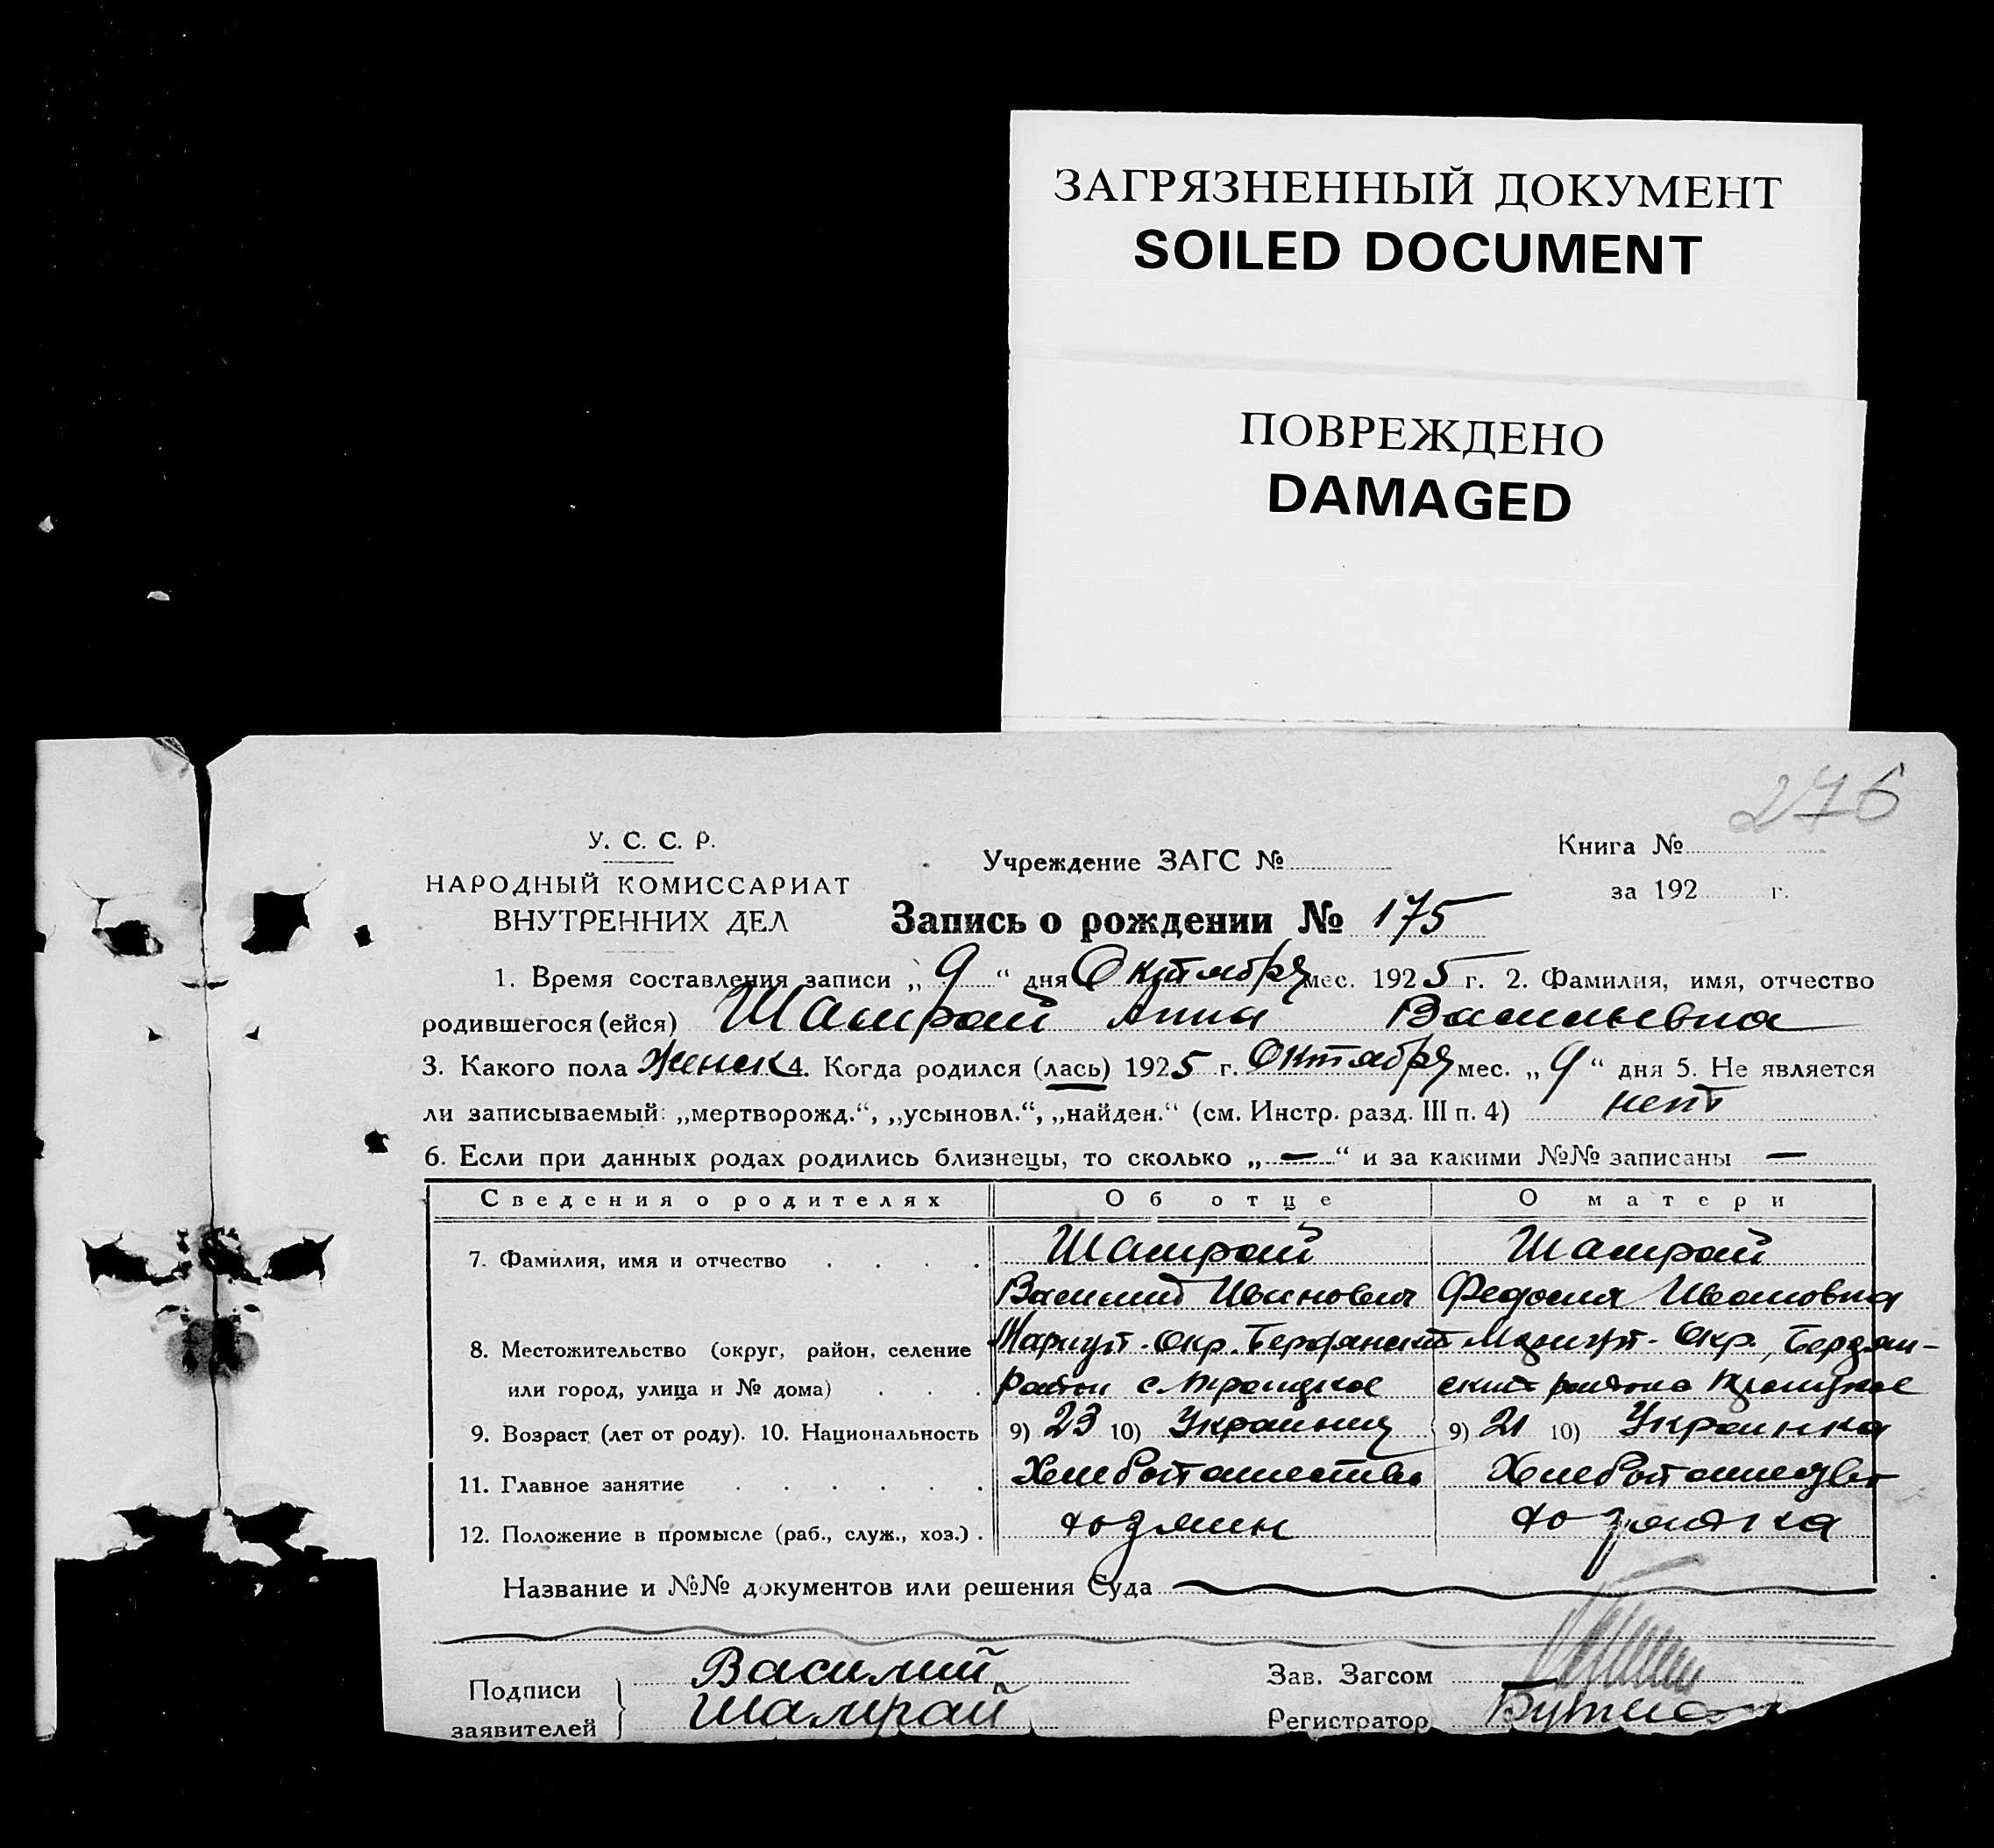 ЗАГРЯЗНЕННЫЙ ДОКУМЕНТ
SOILED DOCUMENT
ПОВРЕЖДЕНО
DAMAGED
276
У. С. С. Р.
НАРОДНЫЙ КОМИССАРИАТ
ВНУТРЕННИХ ДЕЛ
Учреждение ЗАГС №
Книга №
за 192 г.
Запись о рождении № 175
1. Время составления записи „ 9 “ дня Октября мес. 1925 г. 2. Фамилия, имя, отчество
родившегося (ейся) Шамрай Анна Васильевна
3. Какого пола женск 4. Когда родился (лась) 1925 г. Октября мес. „ 9 “ дня 5. Не является
ли записываемый: „мертворожд.“, „усыновл.“, „найден.“ (см. Инстр. разд. III п. 4) нет
6. Если при данных родах родились близнецы, то сколько „ — “ и за какими №№ записаны —
Сведения о родителях Об отце О матери
7. Фамилия, имя и отчество . . . . Шамрай Шамрай
Василий Иванович Федосия Ивановна
8. Местожительство (округ, район, селение Мариуп. Окр. Бердянский Мариуп. Окр., Бердян-
или город, улица и № дома) . . . район с Троицкое ский района Троицкое
9. Возраст (лет от роду). 10. Национальность 9) 23 10) Украинец 9) 21 10) Украинка
11. Главное занятие . . . . . . Хлебопашество Хлебопашество
12. Положение в промысле (раб., служ., хоз.) . хозяин хозяйка
Название и №№ документов или решения Суда
Подписи
заявителей
Василий
Шамрай
Зав. Загсом
Регистратор